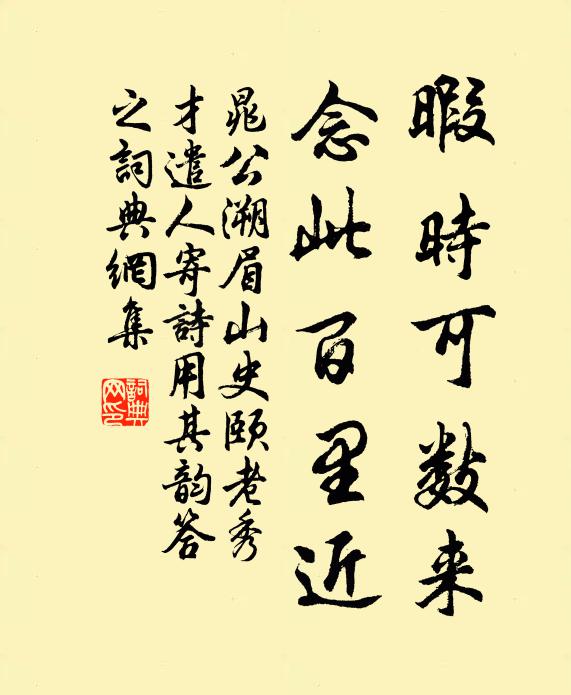 暇時可数来
念此百里近
晁公溯眉山史頤老秀
才遣人寄詩用其韵答
之詞典網集
詞典
网印